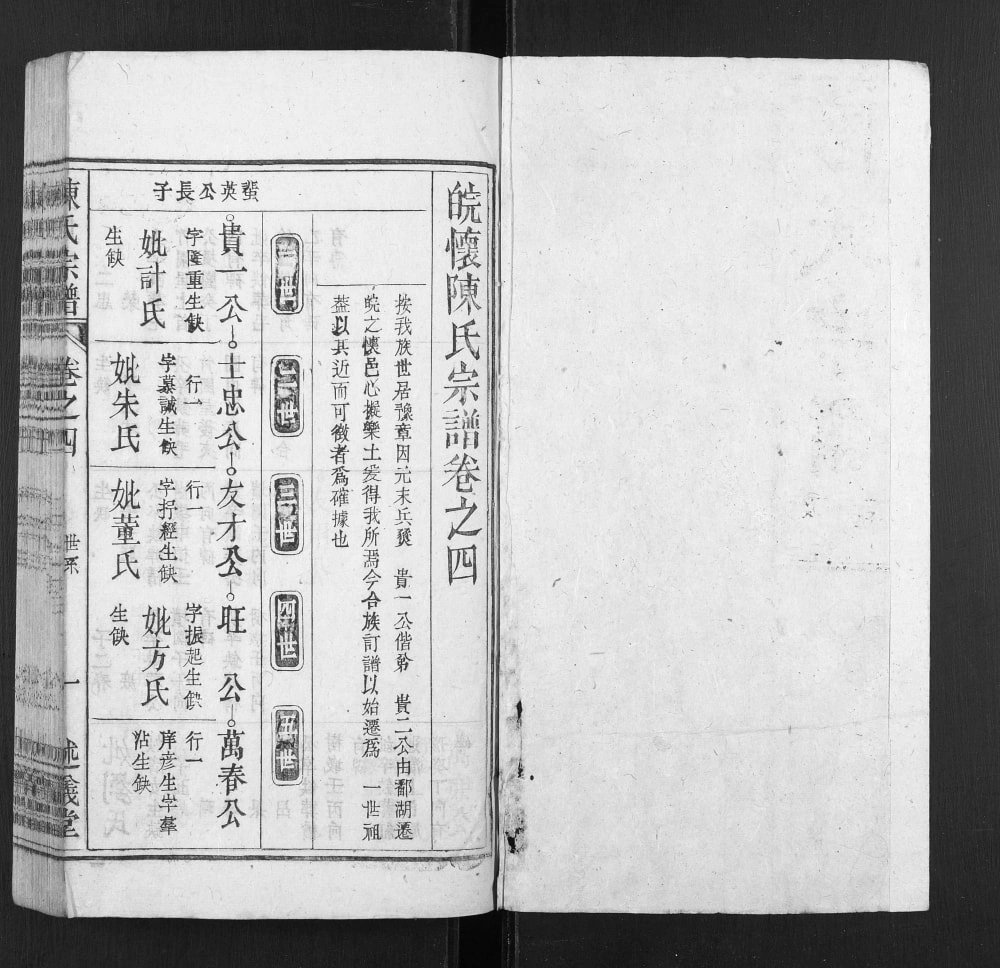 皖懷陳氏宗譜卷之四
按我族世居豫章因元末兵燹　貴一公偕弟　貴二公由鄱湖遷
皖之懷邑心擬樂土爰得我所焉今合族訂譜以始遷爲　一世祖
蓋以其近而可徵者爲確據也
一世
二世
三世
四世
五世
英公長子
貴一公
士忠公
友才公
旺公
萬春公
字隆重生缺
妣計氏
生缺
行一
字慕誠生缺
妣朱氏
行一
字抒經生缺
妣董氏
字振起生缺
妣方氏
生缺
行一
彦生
沾生缺
陳氏宗譜
卷之四
世系
一
述義堂